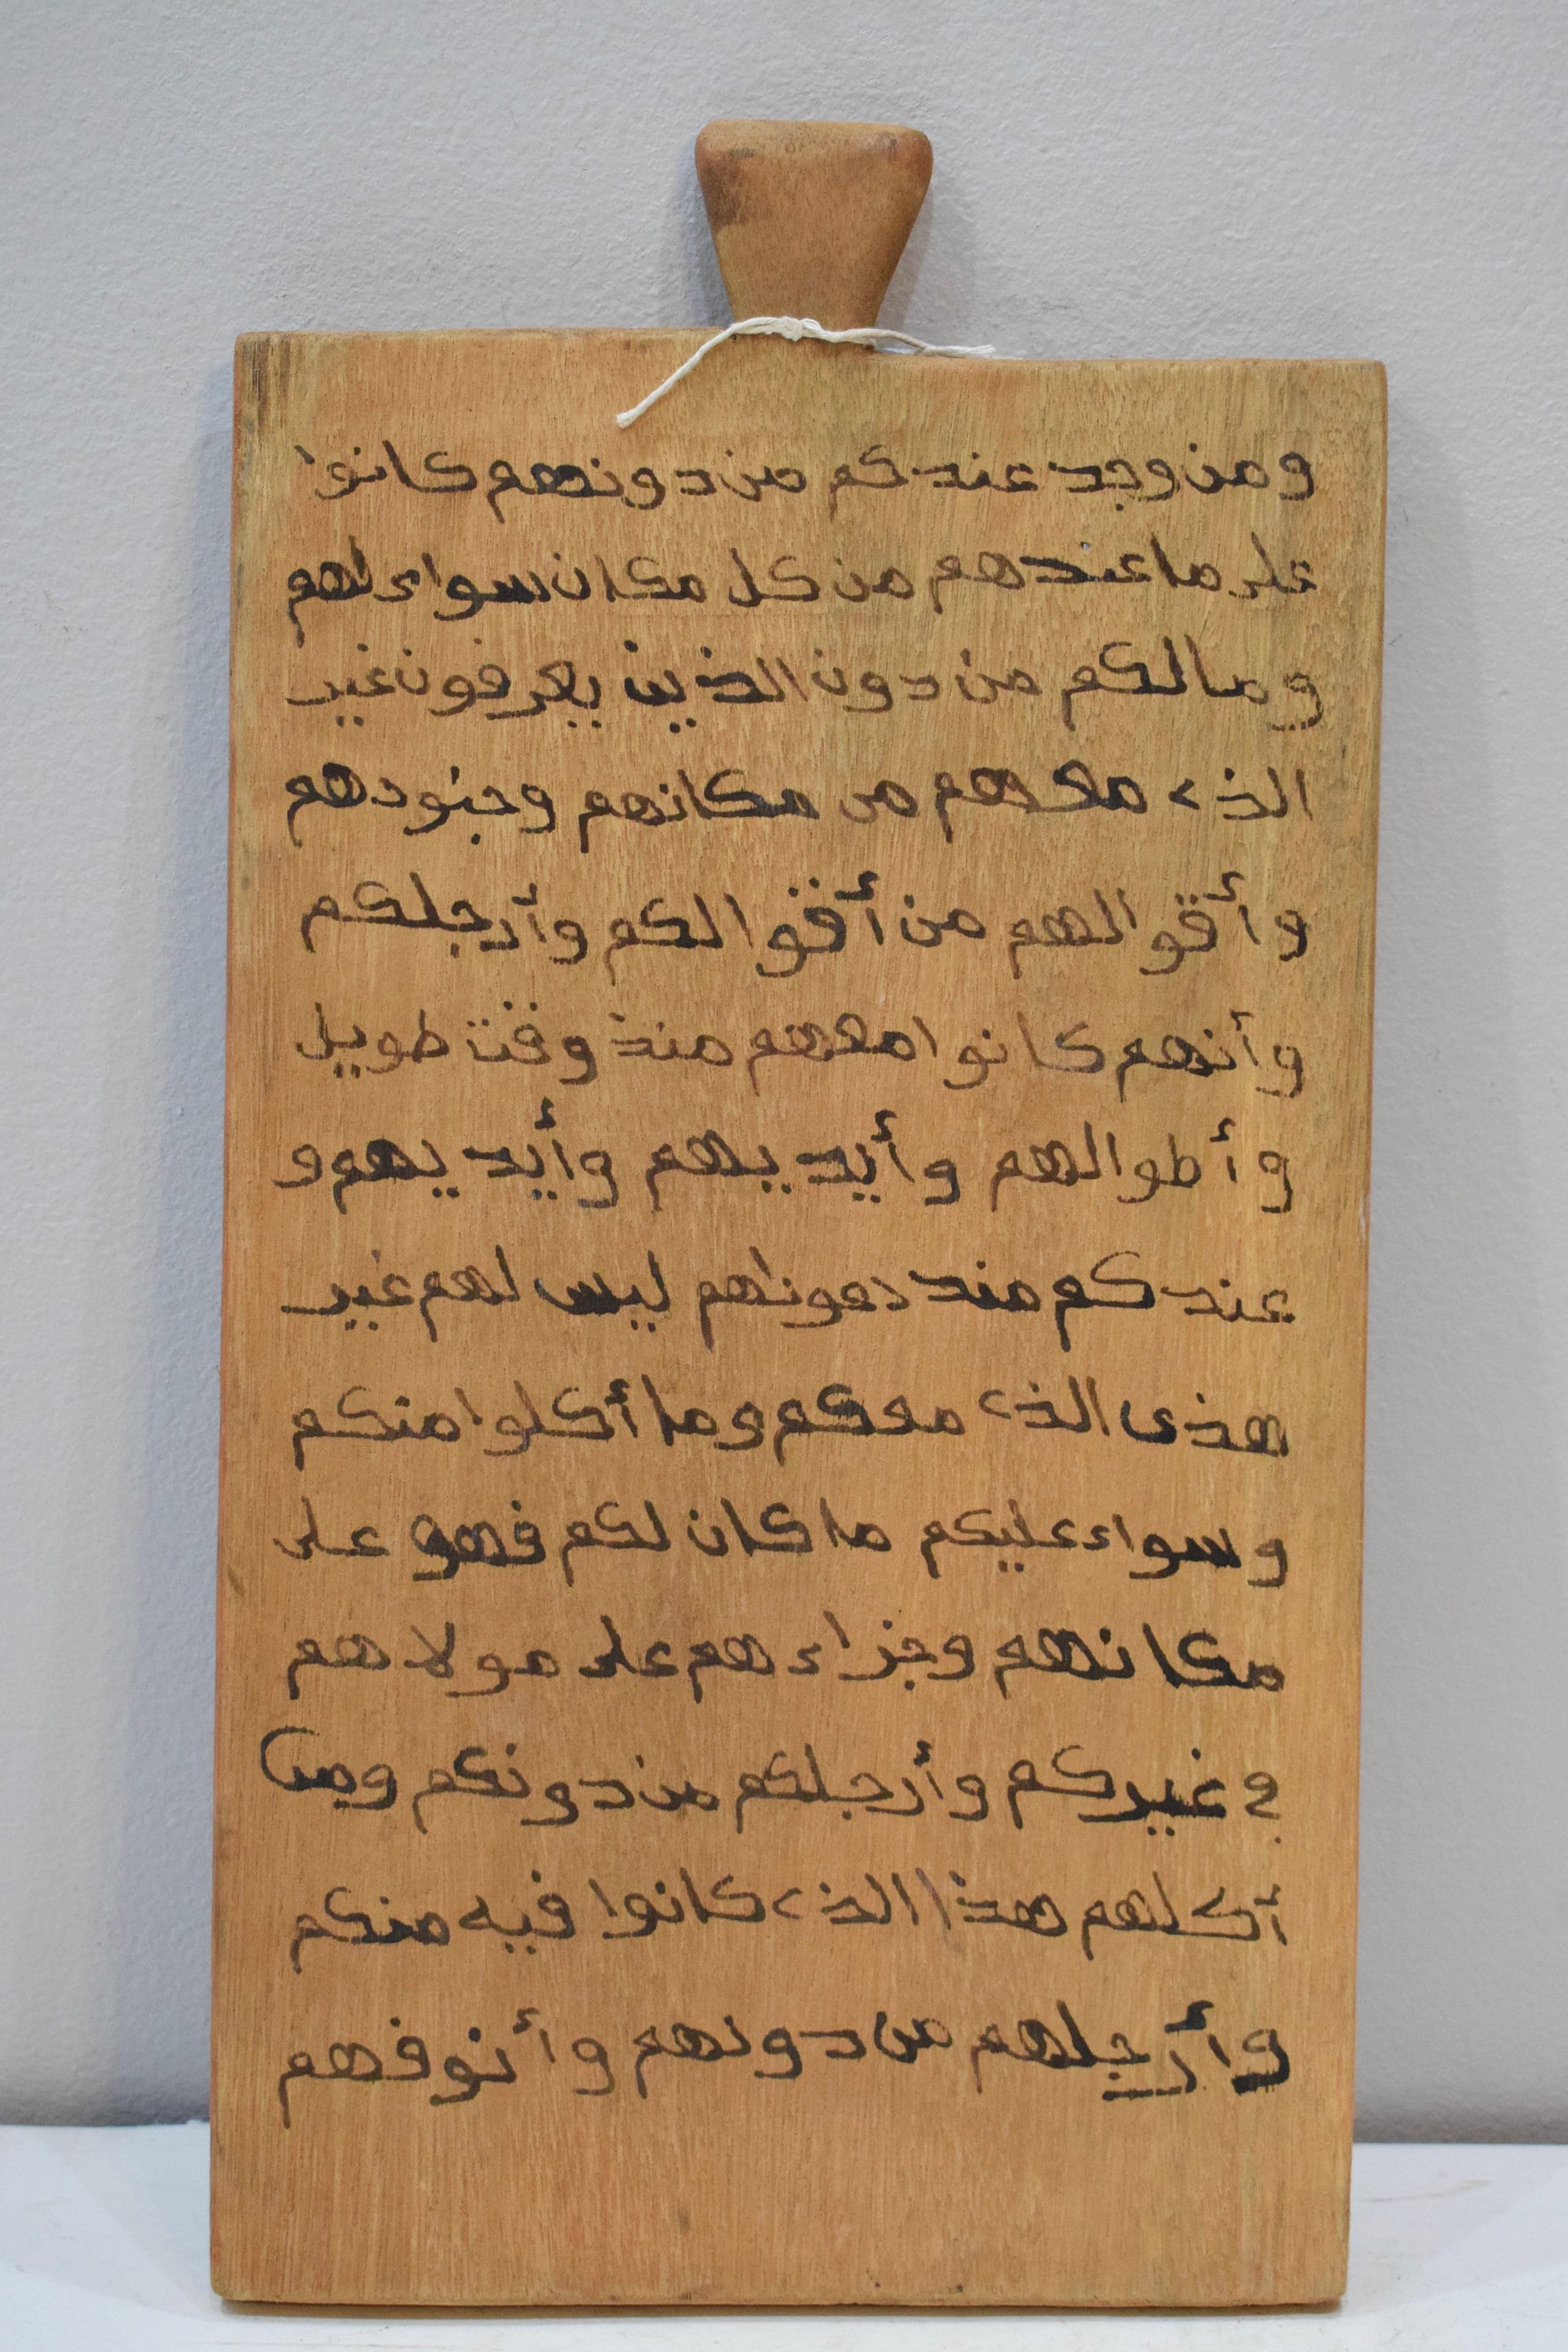 ومن وجد عندكم من دونهم كانوا
على ما عندهم من كل مكان سواء لهم
وما لكم من دون الذين يعرفون غير
الذي معهم من مكانهم وجنودهم
وأقوالهم من أقوالكم وأرجلكم
وأنهم كانوا معهم منذ وقت طويل
وأطوالهم وأيديهم وأيديهم و
عندكم منذ دعوناهم ليس لهم غير
هذى الذي معكم وما أكلوا منكم
وسواء عليكم ما كان لكم فهو على
مكانهم وجزاءهم على مولاهم
في غيركم وأرجلكم من دونكم وما
أكلهم هذا الذي كانوا فيه منكم
وأرجلهم من دونهم وأنوفهم